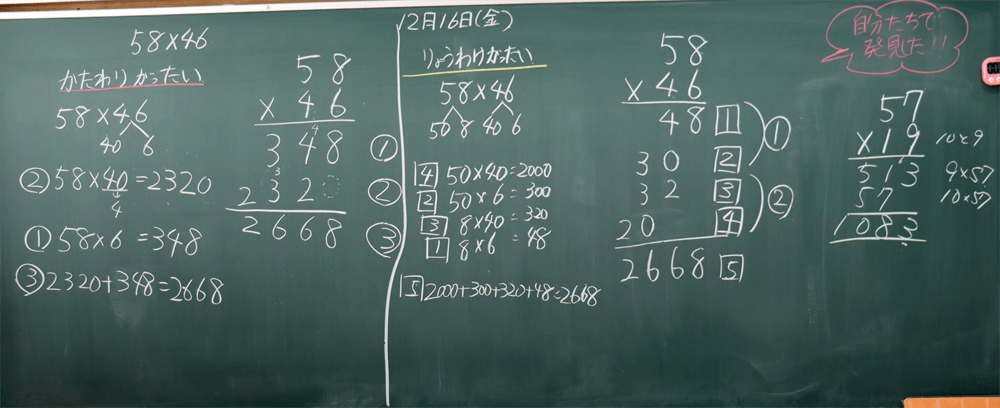 58×46
かたわりがったい
58×46
40 6
②58×40=2320
4
①58×6=348
③2320+348=2668
58
×46
4
348 ①
3
232 ②
2668 ③
12月16日(金)
りょうわけがったい
58×46
50 8 40 6
4 50×40=2000
2 50×6=300
3 8×40=320
1 8×6=48
5 2000+300+320+48=2668
58
×46
48 1
30 2
①
32 3
20 4
②
2668 5
自分たちで
発見た!!
57
×19 10×9
513 9×57
57 10×57
1083